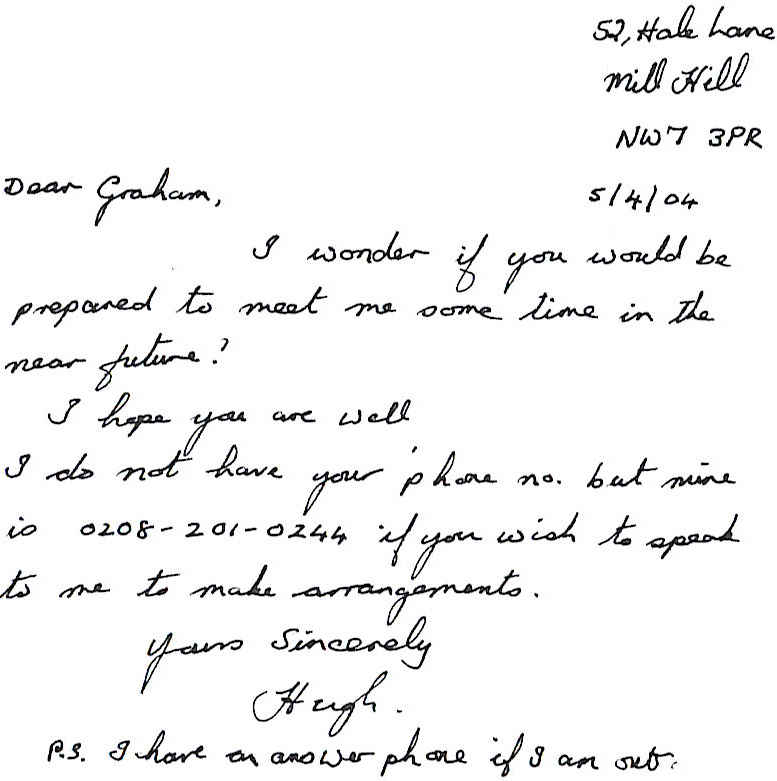 52, Hale Lane
Mill Hill
NW7 3PR
Dear Graham,
5/4/04
I wonder if you would be
prepared to meet me some time in the
near future?
I hope you are well
I do not have your 'phone no. but mine
is 0208-201-0244 if you wish to speak
to me to make arrangements.
Yours Sincerely
Hugh.
P.S. I have an answer phone if I am out.